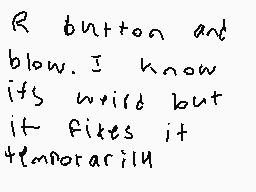 R button and
blow. I know
its weird but
it fixes it
temporarily